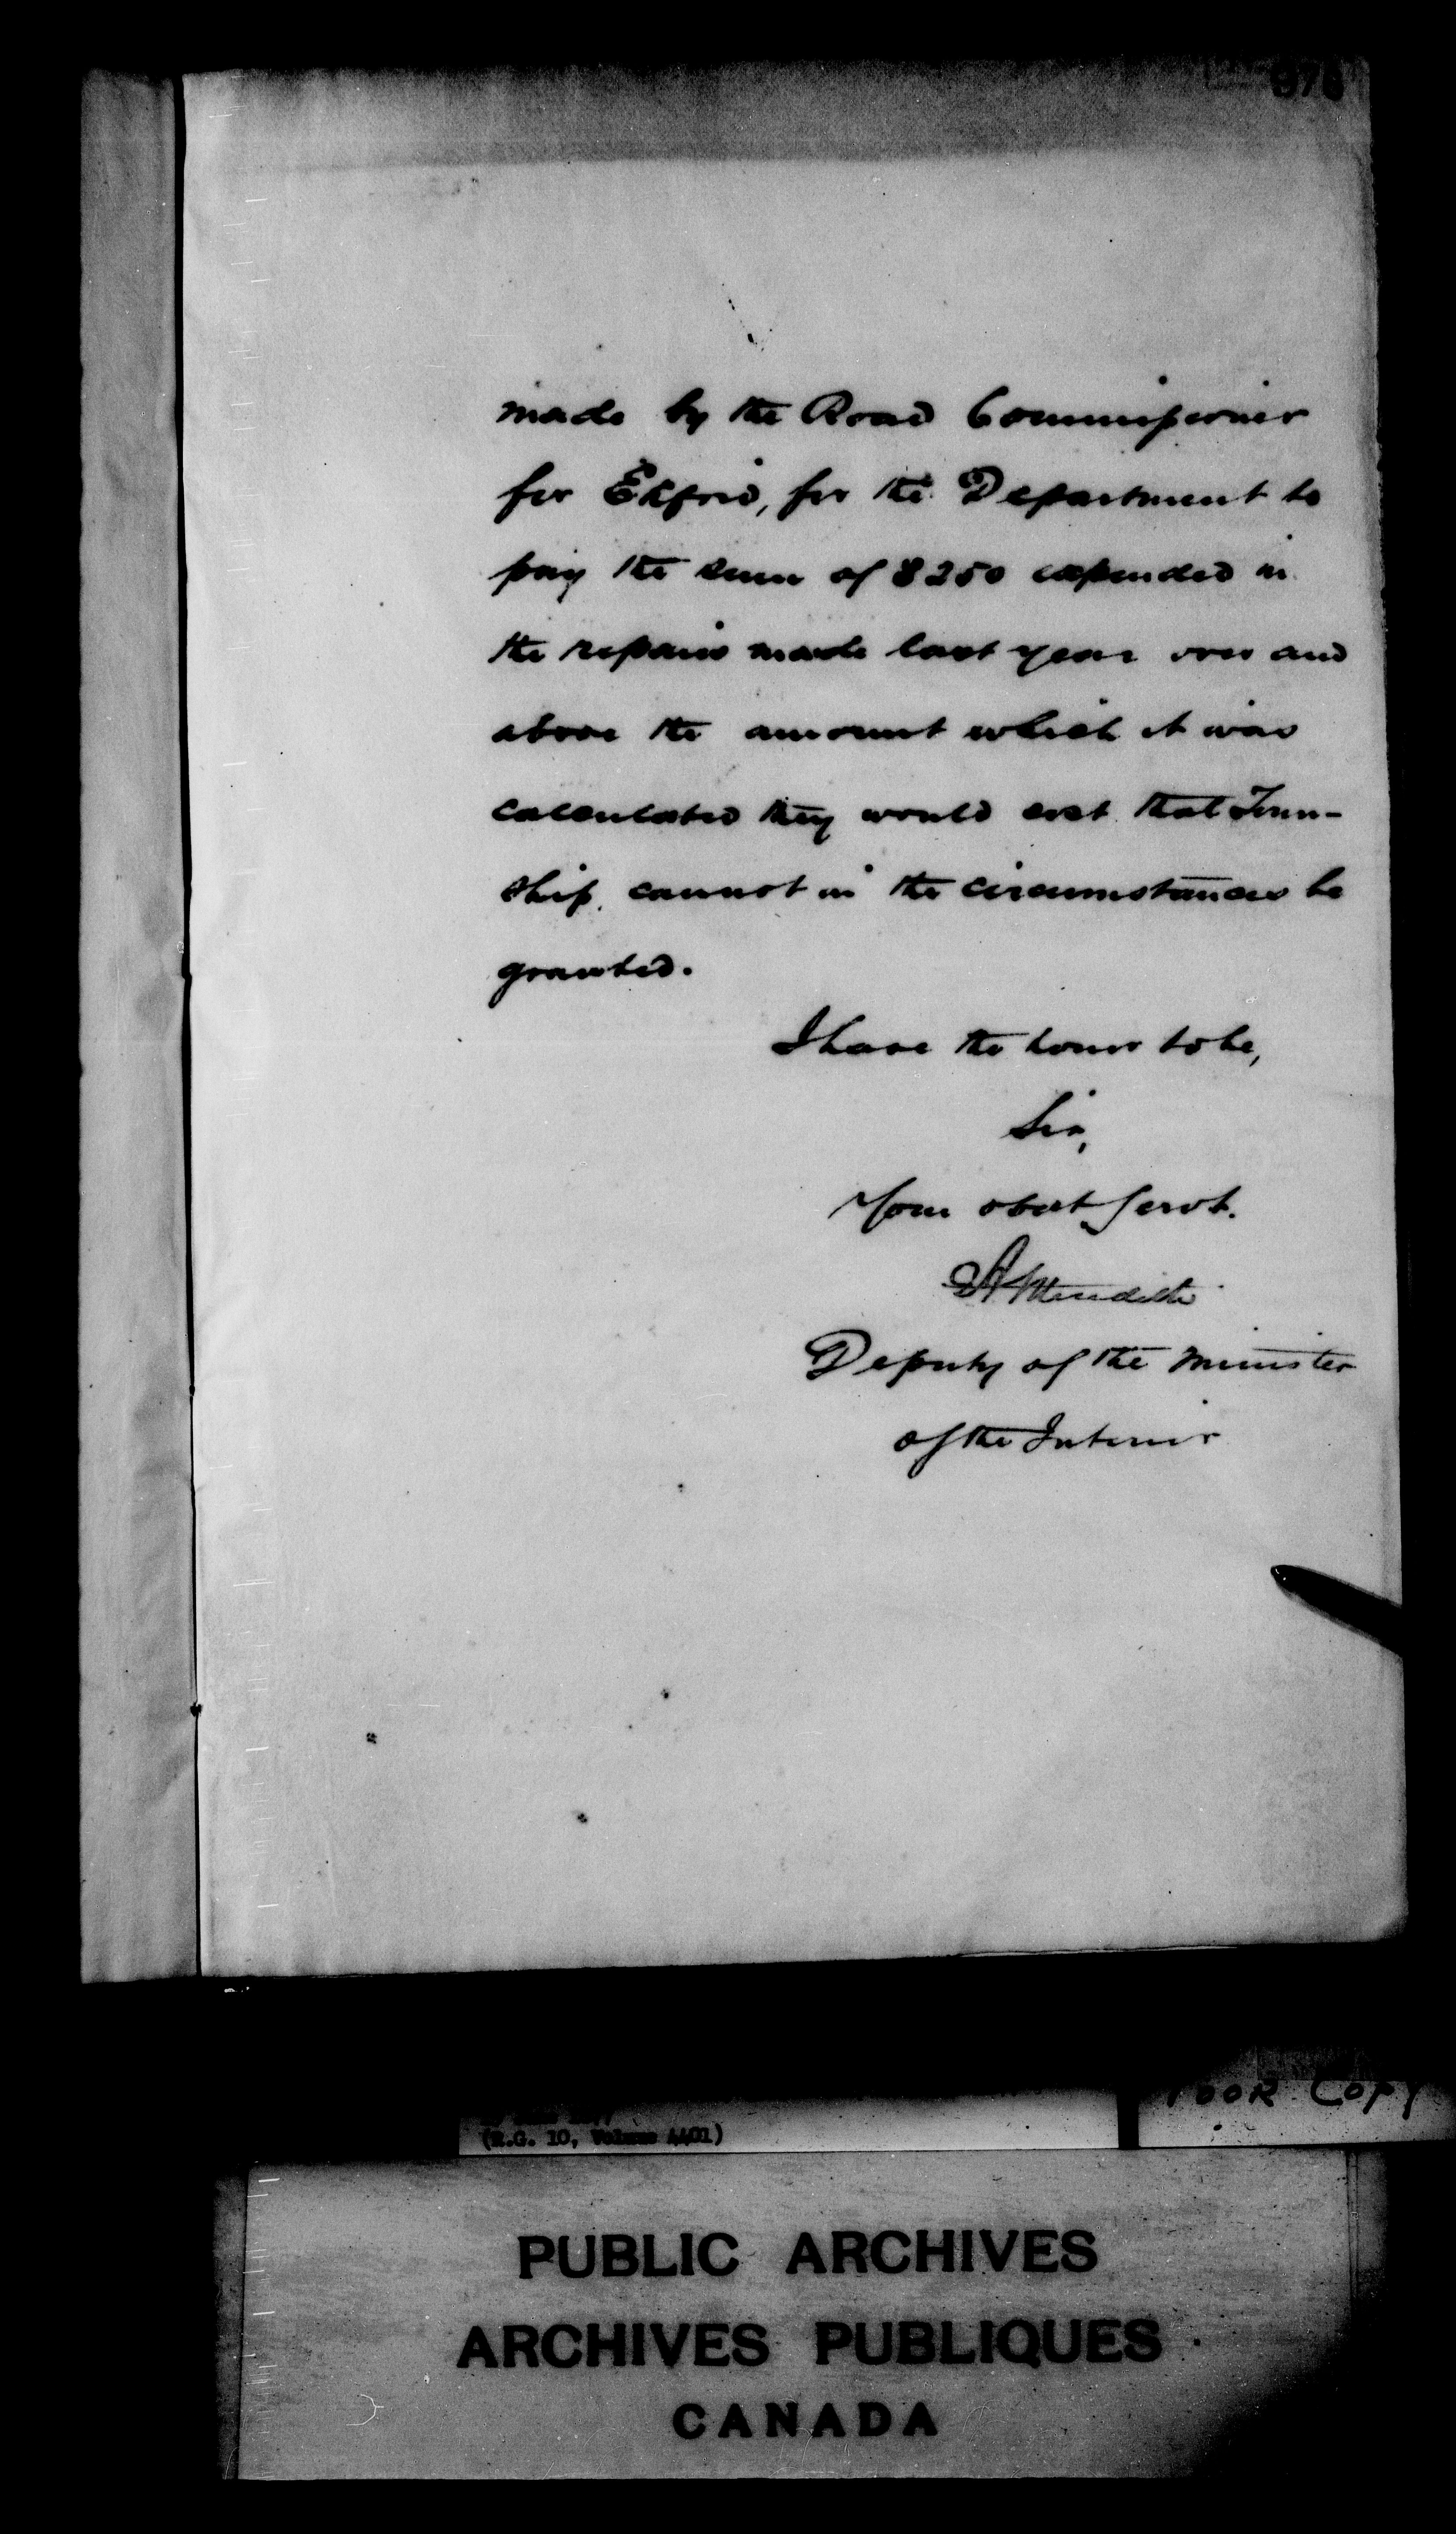 made by the Road Commissioner
for Ekfrid, for the Department to
pay the sum of $250 expended in
the repairs made last year over and
above the amount which it was
calculated they would cost that Town-
ship, cannot in the circumstances be
granted.
I have the honor to be,
Sir,
Your obedt Servt.
Meredith
Deputy of the Minister
of the Interior
POOR COPY
(R.G. 10, Volume 4401)
PUBLIC ARCHIVES
ARCHIVES PUBLIQUES
CANADA